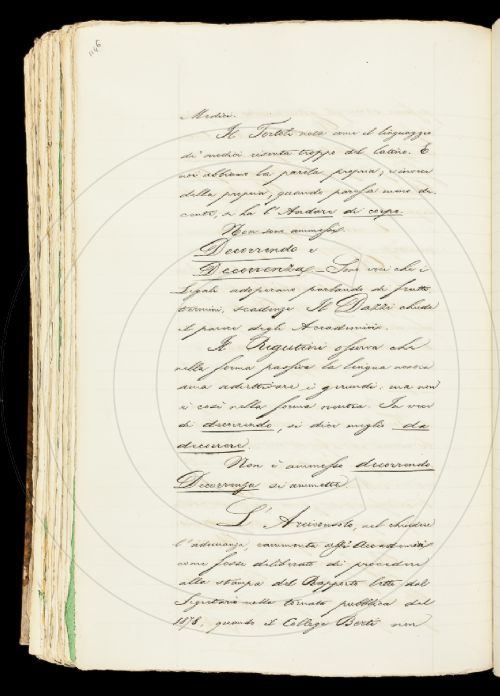 Medici.
Il Tortoli nota come il linguaggio
di' medici risenta troppo del latino. E
noi abbiamo la parola propria; e invece
della propria, quando paressi meno de-
cente, si ha l'Andare di corpo.
Non son ammessi.
Decorrendo e
Decorrenza – Son voci che i
Legali adoperano parlando di frutti
termini, scadenze. Il Dazzi chiede
il parere degli Accademici.
Il Rigutini osserva che
nella forma passiva la lingua nostra
ama adiettivare i gerundi: ma non
è così nella forma neutra. In vece
di decorrendo, si dice meglio da
decorrere.
Non è ammesso decorrendo
Decorrenza si ammette.
L'Arciconsolo, nel chiudere
l'adunanza, rammenta agli Accademici
come fosse deliberato di procedere
alla stampa del Rapporto letto dal
Segretario nella tornata pubblica del
1878, quando il Collega Berti non